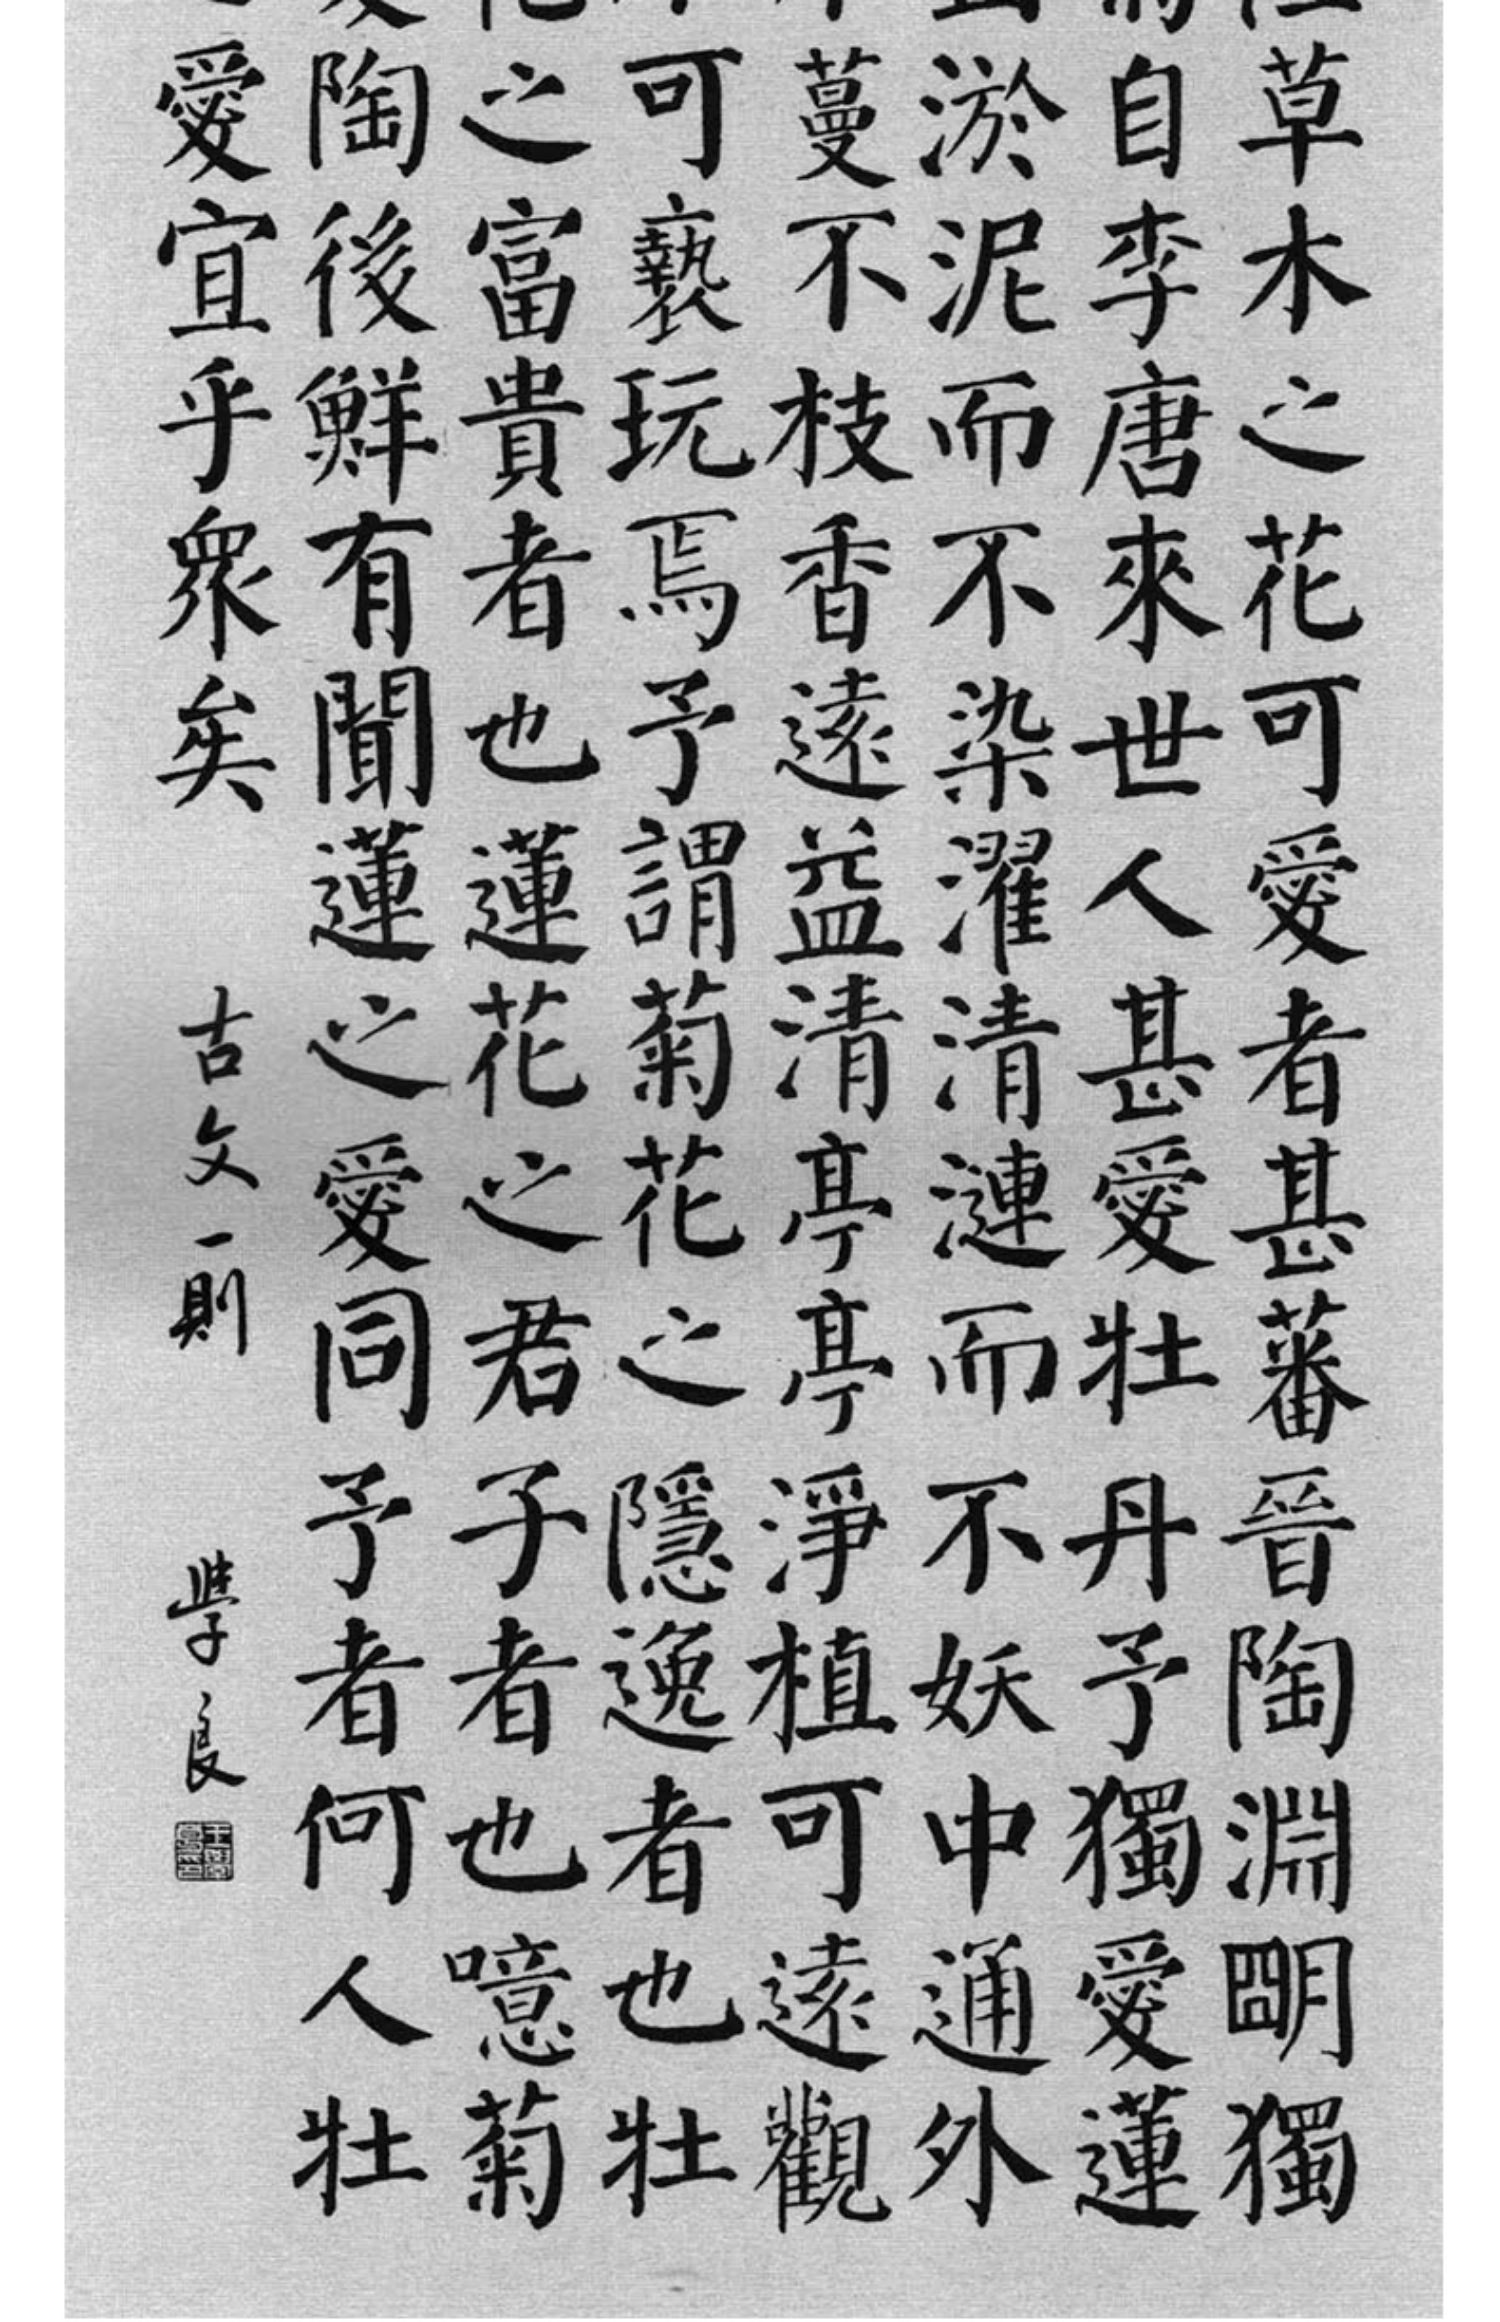 草木之花可愛者甚蕃晉陶淵明獨
自李唐來世人甚愛牡丹予獨愛蓮
淤泥而不染濯清漣而不妖中通外
蔓不枝香遠益清亭亭淨植可遠觀
可褻玩焉予謂菊花之隱逸者也牡
之富貴者也蓮花之君子者也噫菊
陶後鮮有聞蓮之愛同予者何人牡
愛宜乎眾矣
古文一則
學良